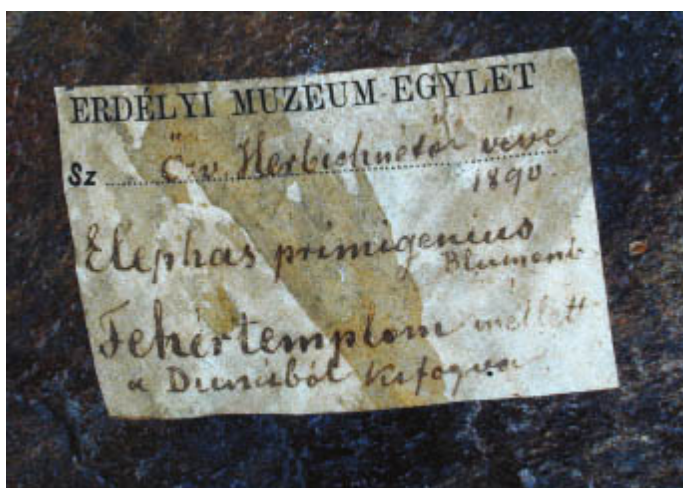 ERDÉLYI MUZEUM-EGYLET
Sz Özv. Herbichnétől véve
1890.
Elephas primigenius
Blumenb
Fehértemplom mellett
a Dunából kifogva